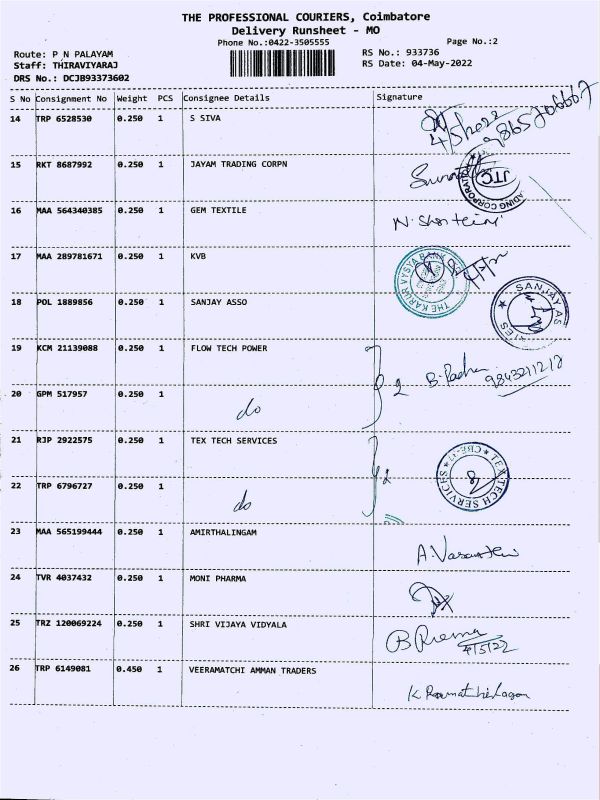 THE PROFESSIONAL COURIERS, Coimbatore
Delivery Runsheet - MO
Phone No.:0422-3505555
Page No.:2
Route: P N PALAYAM
RS No.: 933736
Staff: THIRAVIYARAJ
RS Date: 04-May-2022
DRS No.: DCJB93373602
S No Consignment No Weight PCS Consignee Details Signature
14 TRP 6528530 0.250 1 S SIVA
4/5/2022
15 RKT 8687992 0.250 1 JAYAM TRADING CORPN
JTC
ADING CORPORATI
16 MAA 564340385 0.250 1 GEM TEXTILE
17 MAA 289781671 0.250 1 KVB
THE KARUR VYSYA BANK
18 POL 1889856 0.250 1 SANJAY ASSO
SANJAY AS
19 KCM 21139088 0.250 1 FLOW TECH POWER
2 B. Padma
9843211212
20 GPM 517957 0.250 1
do
21 RJP 2922575 0.250 1 TEX TECH SERVICES
2
TEX TECH SERVICES
22 TRP 6796727 0.250 1
do
23 MAA 565199444 0.250 1 AMIRTHALINGAM
24 TVR 4037432 0.250 1 MONI PHARMA
25 TRZ 120069224 0.250 1 SHRI VIJAYA VIDYALA
B Prema
4/5/22
26 TRP 6149081 0.450 1 VEERAMATCHI AMMAN TRADERS